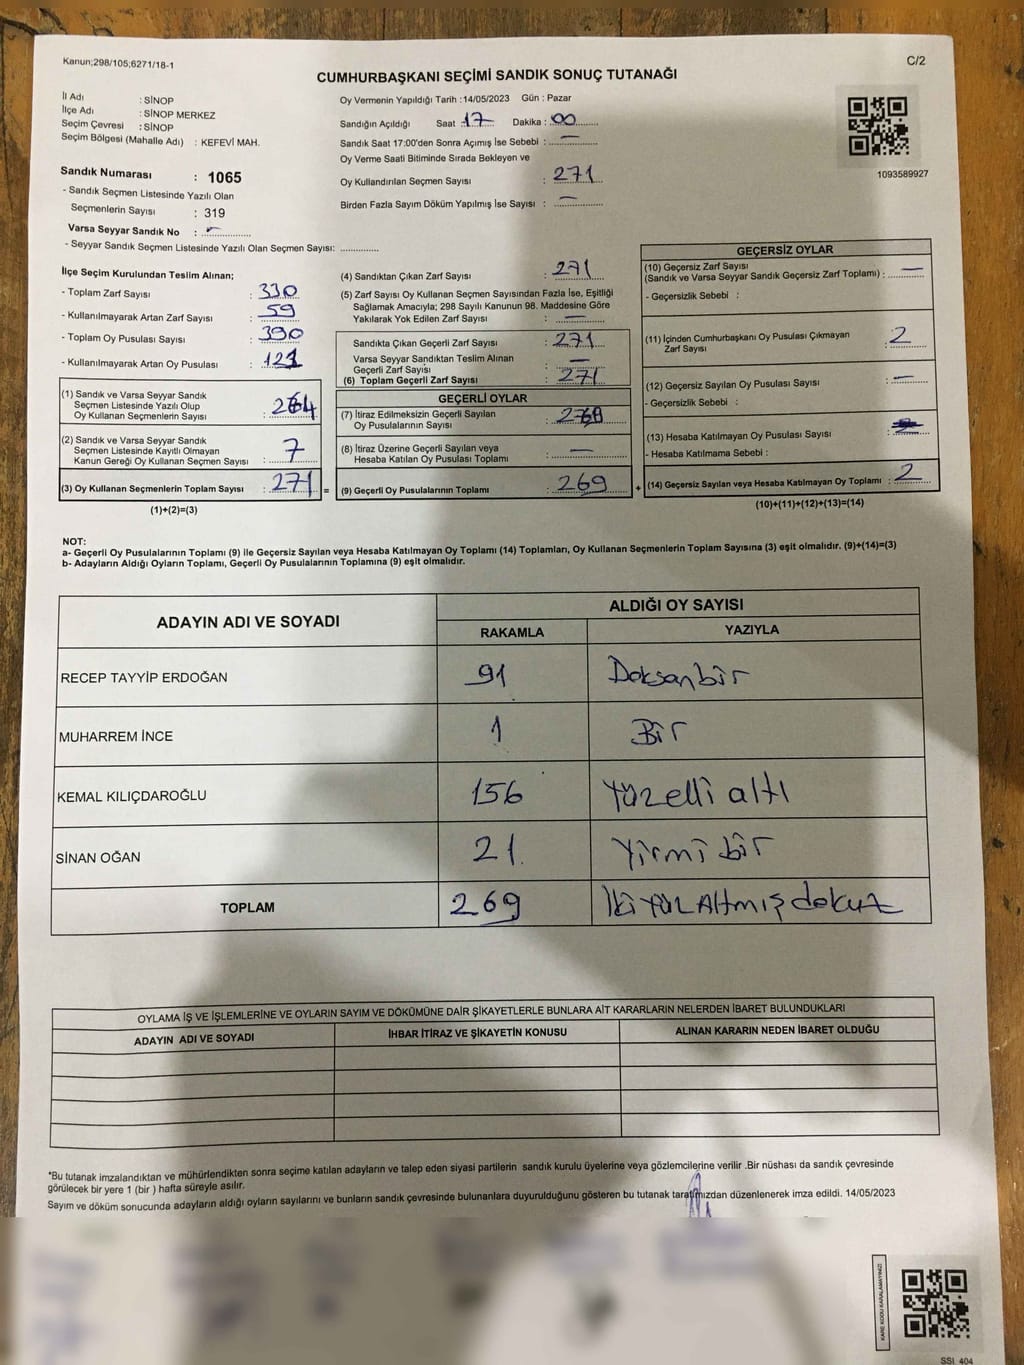 Kanun;298/105;6271/18-1
C/2
CUMHURBAŞKANI SEÇİMİ SANDIK SONUÇ TUTANAĞI
İl Adı : SİNOP
İlçe Adı : SİNOP MERKEZ
Seçim Çevresi : SİNOP
Seçim Bölgesi (Mahalle Adı) : KEFEVİ MAH.
Sandık Numarası : 1065
- Sandık Seçmen Listesinde Yazılı Olan
Seçmenlerin Sayısı : 319
Varsa Seyyar Sandık No : -
- Seyyar Sandık Seçmen Listesinde Yazılı Olan Seçmen Sayısı: ..............
Oy Vermenin Yapıldığı Tarih :14/05/2023 Gün : Pazar
Sandığın Açıldığı Saat 17 Dakika : 00
Sandık Saat 17:00'den Sonra Açımış İse Sebebi : —
Oy Verme Saati Bitiminde Sırada Bekleyen ve
Oy Kullandırılan Seçmen Sayısı : 271
Birden Fazla Sayım Döküm Yapılmış İse Sayısı : —
1093589927
İlçe Seçim Kurulundan Teslim Alınan;
- Toplam Zarf Sayısı : 330
- Kullanılmayarak Artan Zarf Sayısı : 59
- Toplam Oy Pusulası Sayısı : 390
- Kullanılmayarak Artan Oy Pusulası : 121
(1) Sandık ve Varsa Seyyar Sandık
Seçmen Listesinde Yazılı Olup
Oy Kullanan Seçmenlerin Sayısı : 264
(2) Sandık ve Varsa Seyyar Sandık
Seçmen Listesinde Kayıtlı Olmayan
Kanun Gereği Oy Kullanan Seçmen Sayısı : 7
(3) Oy Kullanan Seçmenlerin Toplam Sayısı : 271 =
(1)+(2)=(3)
(4) Sandıktan Çıkan Zarf Sayısı : 271
(5) Zarf Sayısı Oy Kullanan Seçmen Sayısından Fazla İse, Eşitliği
Sağlamak Amacıyla; 298 Sayılı Kanunun 98. Maddesine Göre
Yakılarak Yok Edilen Zarf Sayısı : —
Sandıkta Çıkan Geçerli Zarf Sayısı : 271
Varsa Seyyar Sandıktan Teslim Alınan
Geçerli Zarf Sayısı : —
(6) Toplam Geçerli Zarf Sayısı : 271
GEÇERLİ OYLAR
(7) İtiraz Edilmeksizin Geçerli Sayılan
Oy Pusulalarının Sayısı :
(8) İtiraz Üzerine Geçerli Sayılan veya
Hesaba Katılan Oy Pusulası Toplamı : —
(9) Geçerli Oy Pusulalarının Toplamı : 269 +
GEÇERSİZ OYLAR
(10) Geçersiz Zarf Sayısı
(Sandık ve Varsa Seyyar Sandık Geçersiz Zarf Toplamı) : —
- Geçersizlik Sebebi :
(11) İçinden Cumhurbaşkanı Oy Pusulası Çıkmayan
Zarf Sayısı : 2
(12) Geçersiz Sayılan Oy Pusulası Sayısı : —
- Geçersizlik Sebebi :
(13) Hesaba Katılmayan Oy Pusulası Sayısı :
- Hesaba Katılmama Sebebi :
(14) Geçersiz Sayılan veya Hesaba Katılmayan Oy Toplamı : 2
(10)+(11)+(12)+(13)=(14)
NOT:
a- Geçerli Oy Pusulalarının Toplamı (9) ile Geçersiz Sayılan veya Hesaba Katılmayan Oy Toplamı (14) Toplamları, Oy Kullanan Seçmenlerin Toplam Sayısına (3) eşit olmalıdır. (9)+(14)=(3)
b- Adayların Aldığı Oyların Toplamı, Geçerli Oy Pusulalarının Toplamına (9) eşit olmalıdır.
ADAYIN ADI VE SOYADI
ALDIĞI OY SAYISI
RAKAMLA YAZIYLA
RECEP TAYYİP ERDOĞAN 91 Doksanbir
MUHARREM İNCE 1 Bir
KEMAL KILIÇDAROĞLU 156 Yüzelli altı
SİNAN OĞAN 21. Yirmi bir
TOPLAM 269 İki Yüz Altmış dokuz
OYLAMA İŞ VE İŞLEMLERİNE VE OYLARIN SAYIM VE DÖKÜMÜNE DAİR ŞİKAYETLERLE BUNLARA AİT KARARLARIN NELERDEN İBARET BULUNDUKLARI
ADAYIN ADI VE SOYADI İHBAR İTİRAZ VE ŞİKAYETİN KONUSU ALINAN KARARIN NEDEN İBARET OLDUĞU
*Bu tutanak imzalandıktan ve mühürlendikten sonra seçime katılan adayların ve talep eden siyasi partilerin sandık kurulu üyelerine veya gözlemcilerine verilir .Bir nüshası da sandık çevresinde
görülecek bir yere 1 (bir ) hafta süreyle asılır.
Sayım ve döküm sonucunda adayların aldığı oyların sayılarını ve bunların sandık çevresinde bulunanlara duyurulduğunu gösteren bu tutanak tarafımızdan düzenlenerek imza edildi. 14/05/2023
KARE KODU KARALAMAYINIZ!
SSI_404